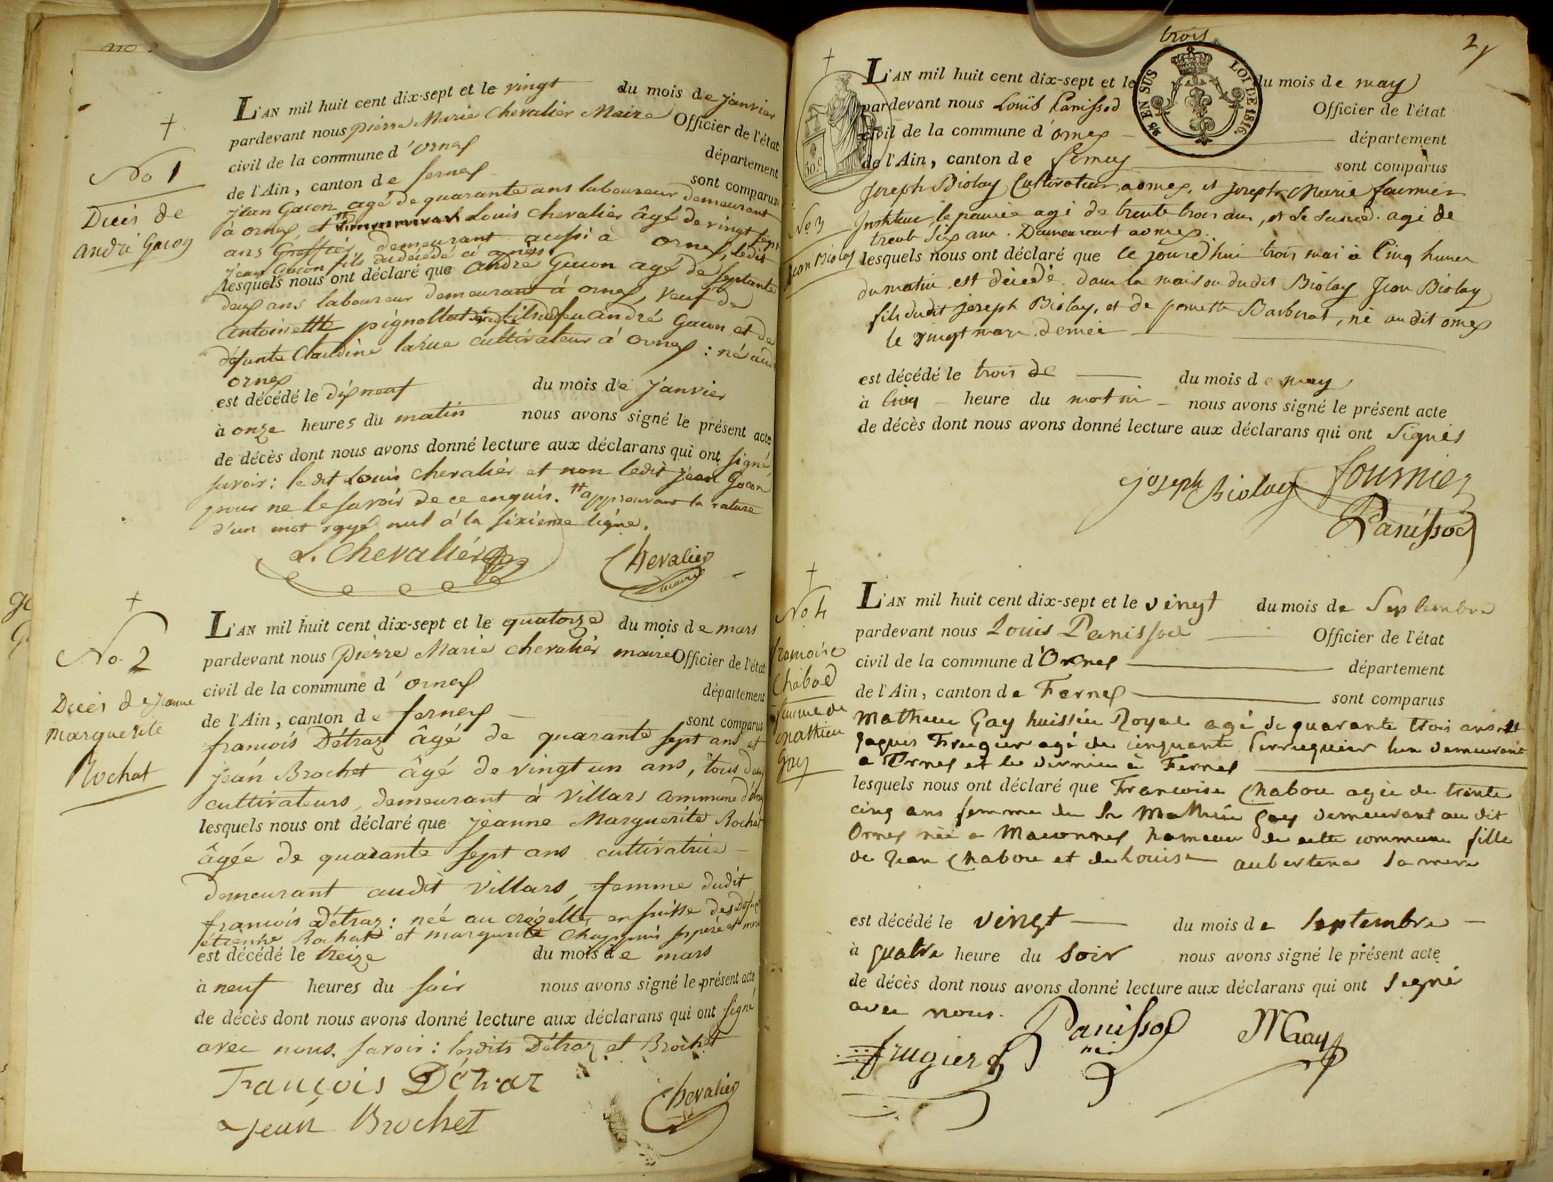 No 1
Décès de
andré Gacon
L'AN mil huit cent dix-sept et le vingt du mois de janvier
pardevant nous pierre Marie Chevalier Maire Officier de l'état
civil de la commune d'ornex département
de l'Ain, canton de fernex sont comparus
jean Gacon agé de quarante ans laboureur demeurant
à ornex, et Louis chevalier âgé de vingt sept
ans Greffier demeurant aussi à ornex, ledit
jean Gacon fils du décédé ci après
lesquels nous ont déclaré que andré Gacon agé de septante
deux ans laboureur demeurant à ornex, veuf de
antoinette pignollat fils de feu andré Gacon et de
défunte Claudine larue cultivateur à ornex : né au
ornex
est décédé le dix neuf du mois de janvier
à onze heures du matin nous avons signé le présent acte
de décès dont nous avons donné lecture aux déclarans qui ont signé
savoir : le dit Louis chevalier et non ledit jean Gacon
pour ne le savoir de ce enquis. approuvant la rature
d'un mot rayé nul à la sixieme ligne.
L. Chevalier Chevalier
maire
No 2
Décès de jeanne
marguerite
Rochat
L'AN mil huit cent dix-sept et le quatorze du mois de mars
pardevant nous pierre Marie chevalier maire Officier de l'état
civil de la commune d'ornex département
de l'Ain, canton de fernex sont comparus
françois Détraz âgé de quarante sept ans et
jean Brochet âgé de vingt un ans, tous deux
cultivateurs, demeurant à villars commune d'ornex
lesquels nous ont déclaré que jeanne Marguerite Rochat
âgée de quarante sept ans cultivatrice
demeurant audit villars, femme dudit
françois Détraz : née au en suisse des défunts
étienne Rochat et marguerite ses père et mère
est décédé le treize du mois de mars
à neuf heures du soir nous avons signé le présent acte
de décès dont nous avons donné lecture aux déclarans qui ont signé
avec nous. savoir : lesdits Détraz et Brochet
François Détraz
jean Brochet
Chevalier
2
No 3
jean Biolay
L'AN mil huit cent dix-sept et le trois du mois de may
pardevant nous Louis Panissod Officier de l'état
civil de la commune d'ornex département
de l'Ain, canton de fernex sont comparus
25 EN SUS LOI DE 1816.
50 c
Joseph Biolay Cultivateur a ornex, et joseph Marie fournier
Instituteur le premier agé de trente trois ans, et le second agé de
trente six ans. Demeurant a ornex.
lesquels nous ont déclaré que le jourd'hui trois mai à Cinq heures
du matin est décédé dans la maison dudit Biolay Jean Biolay
fils dudit joseph Biolay, et de pernette Barberat, né audit ornex
le vingt mars dernier
est décédé le trois de du mois de may
à Cinq heure du matin nous avons signé le présent acte
de décès dont nous avons donné lecture aux déclarans qui ont signés
joseph Biolay fournier
Panissod
No 4
francoise
Chaboud
femme de
mathieu
Gay
L'AN mil huit cent dix-sept et le vingt du mois de Septembre
pardevant nous Louis Panissod Officier de l'état
civil de la commune d'Ornex département
de l'Ain, canton de Fernex sont comparus
Mathieu Gay huissier Royal agé de quarante trois ans et
Jaques Frugier agé de cinquante perruquier l'un demeurant
a Ornex et le dernier à Fernex
lesquels nous ont déclaré que Francoise Chabou agée de trente
cinq ans femme du Sr Mathieu Gay demeurant au dit
Ornex née a Maconnex hameau de cette commune fille
de Jean Chabou et de Louise aubertena sa mere
est décédé le vingt du mois de septembre
à quatre heure du soir nous avons signé le présent acte
de décès dont nous avons donné lecture aux déclarans qui ont signé
avec nous.
frugier Panissod MGay